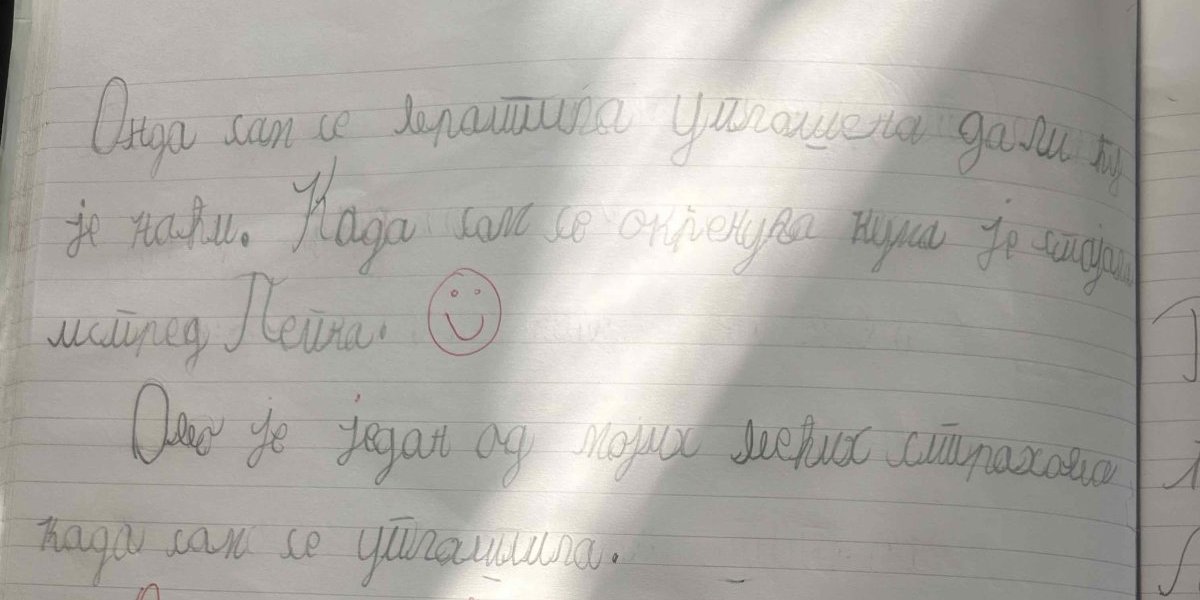 Онда сам се вратила уплашена да ли ћу
је наћи. Када сам се окренула кума је стајала
испред Петла.
Ово је један од мојих већих страхова
када сам се уплашила.